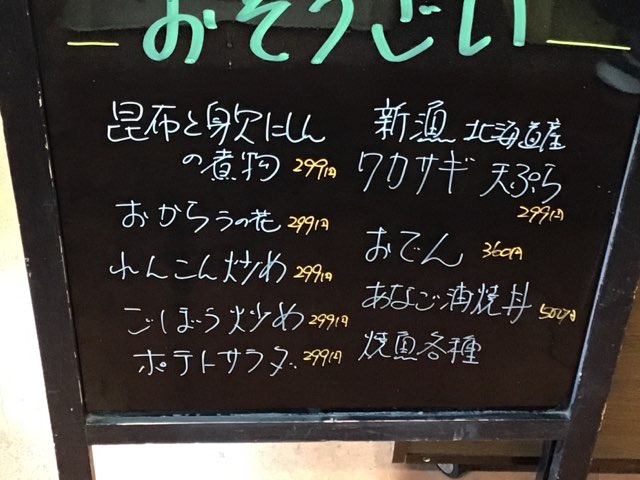 おそうざい
昆布と身欠にしん
の煮物 299円
おから うの花 299円
れんこん炒め 299円
ごぼう炒め 299円
ポテトサラダ 299円
新漁 北海道産
ワカサギ 天ぷら
299円
おでん 360円
あなご蒲焼丼 500円
焼魚各種